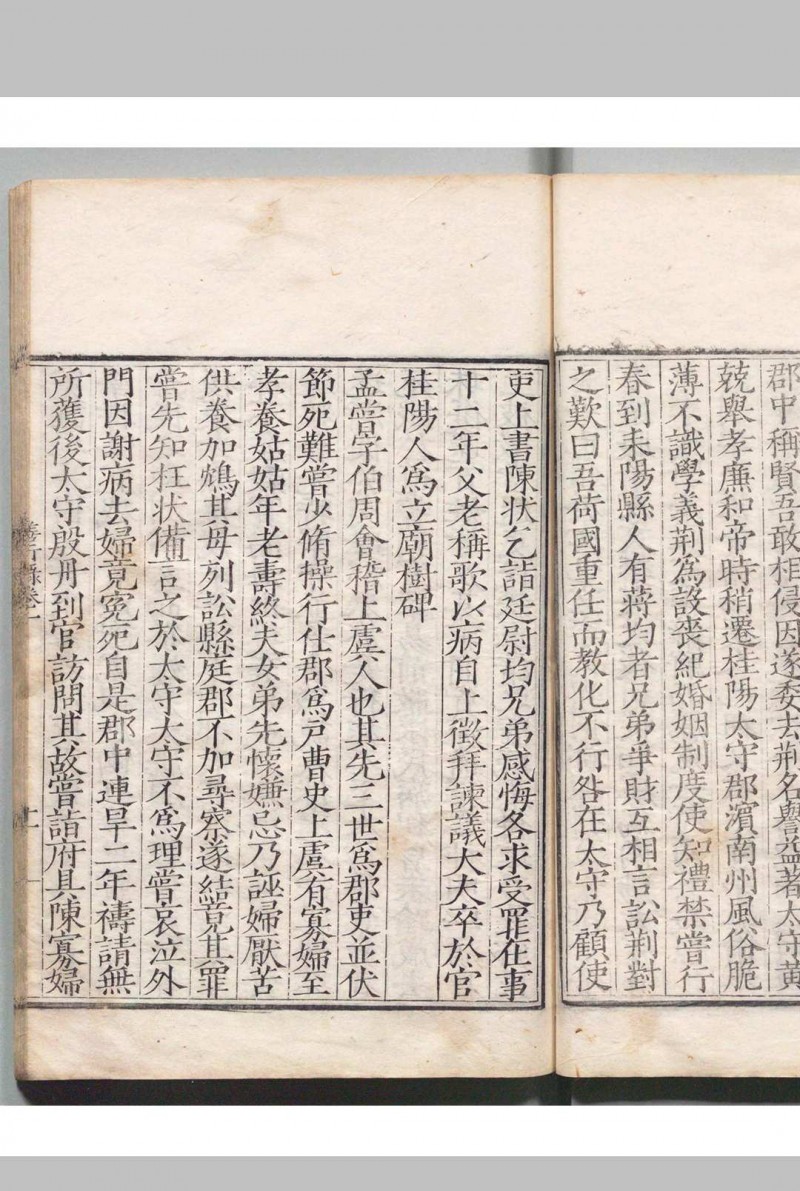 郡中稱賢吾敢相侵因遂委去荆名譽益著太守黄
兢舉孝廉和帝時稍遷桂陽太守郡濵南州風俗脆
薄不識學義荆為設喪紀婚姻制度使知禮禁嘗行
春到耒陽縣人有蒋均者兄弟爭財互相言訟荆對
之歎曰吾荷國重任而教化不行咎在太守乃顧使
吏上書陳状乞詣廷尉均兄弟感悔各求受罪在事
十二年父老稱歌以病自上徵拜諫議大夫卒於官
桂陽人爲立廟樹碑
孟嘗字伯周會稽上虞人也其先三世爲郡吏並伏
節死難嘗少脩操行仕郡爲戸曹史上虞有寡婦至
孝養姑姑年老壽終夫女弟先懷嫌忌乃誣婦厭苦
供養加鴆其母列訟縣庭郡不加尋察遂結竟其罪
嘗先知枉状備言之於太守太守不爲理嘗哀泣外
門因謝病去婦竟寃死自是郡中連旱二年禱請無
所獲後太守殷丹到官訪問其故嘗詣府具陳寡婦
善行錄卷一
十一